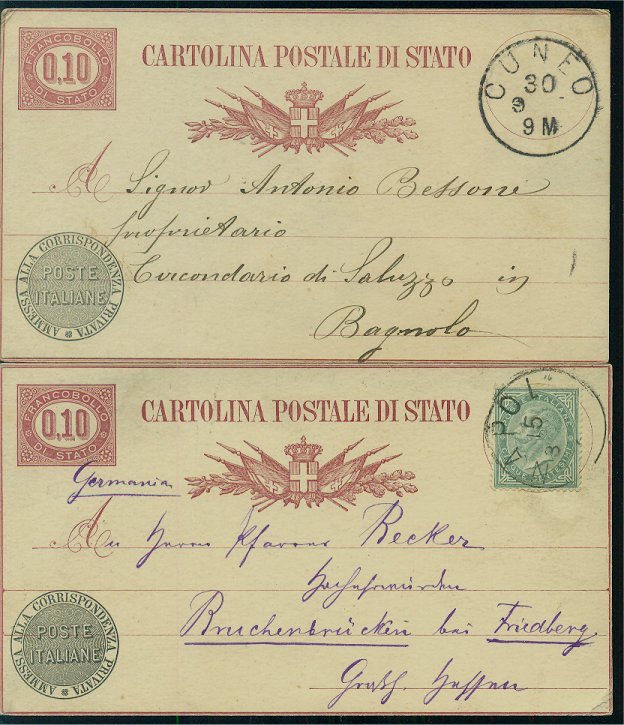 FRANCOBOLLO
0,10
DI STATO
CARTOLINA POSTALE DI STATO
CUNEO
30
9
9 M
A Signor Antonio Bessone
proprietario
AMMESSA ALLA CORRISPONDENZA PRIVATA
POSTE
ITALIANE
Circondario di Saluzzo in
Bagnolo
FRANCOBOLLO
0,10
DI STATO
CARTOLINA POSTALE DI STATO
NAPOLI
15
3
Germania
An Herrn Pfarrer Becker
Hochehrwürden
AMMESSA ALLA CORRISPONDENZA PRIVATA
POSTE
ITALIANE
Bruchenbrücken bei Friedberg.
Grhth. Hessen